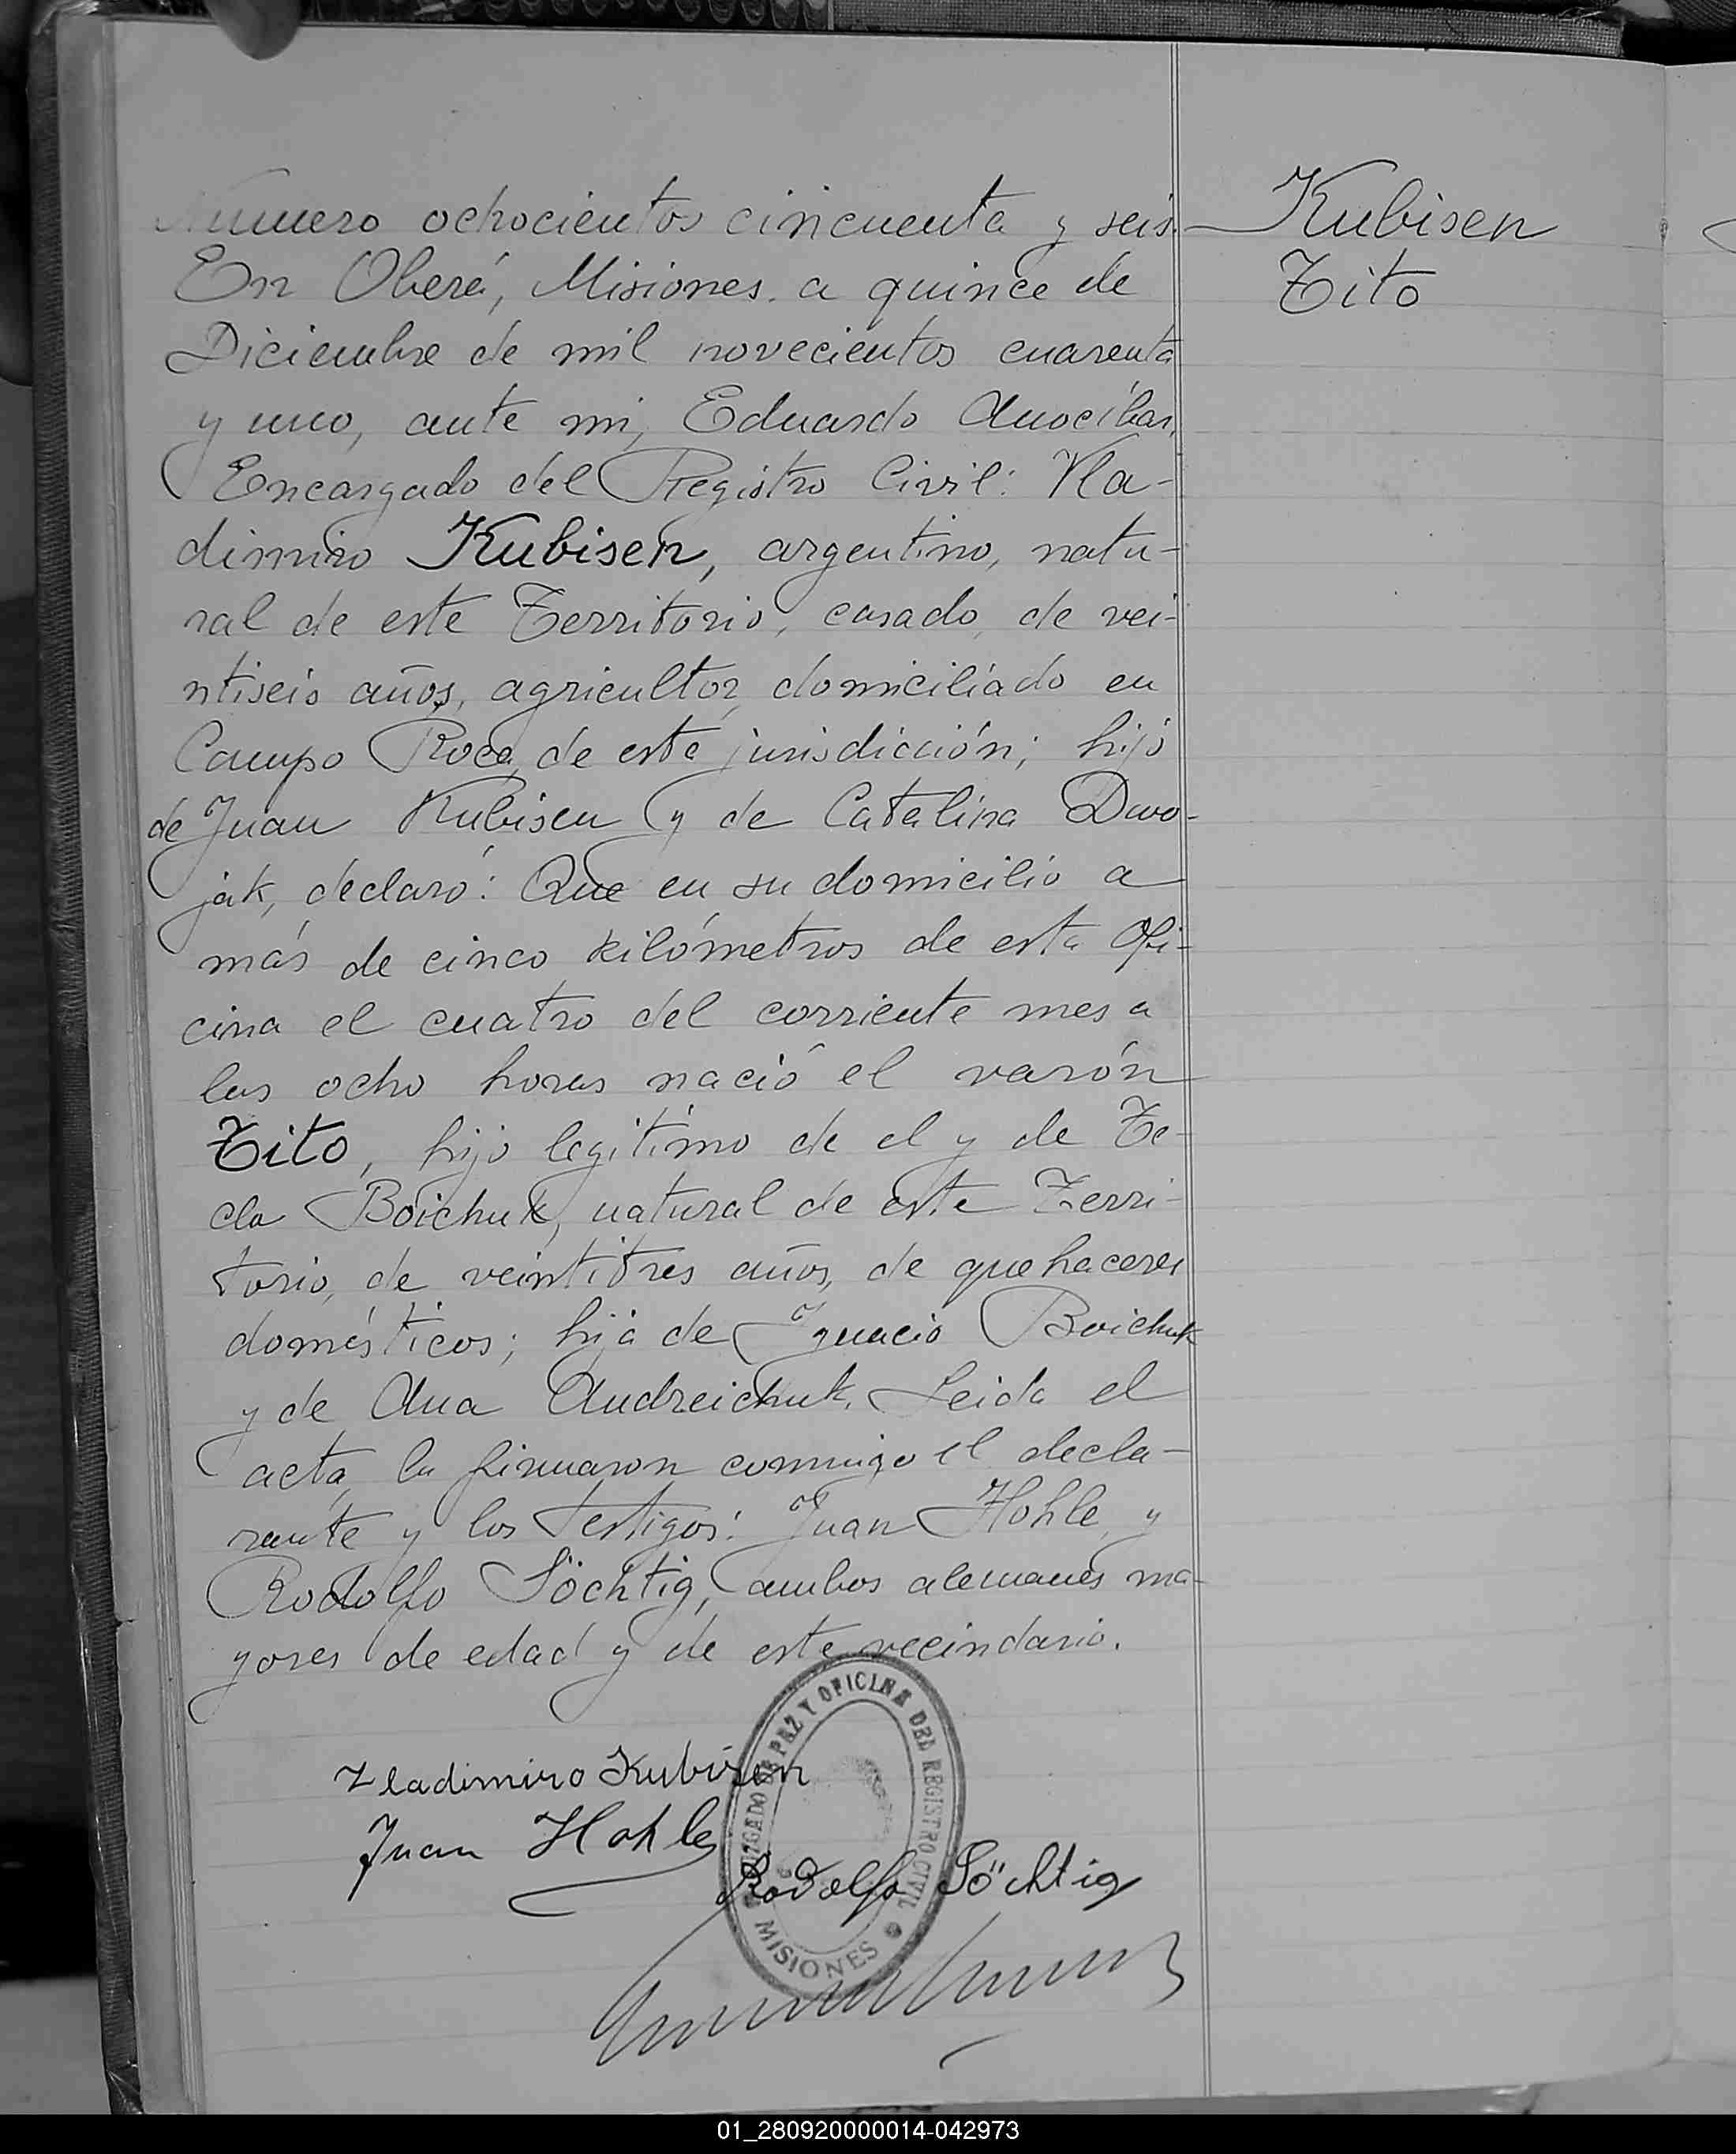 Numero ochocientos cincuenta y seis.
En Oberá, Misiones. a quince de
Diciembre de mil novecientos cuarenta
y uno, ante mi, Eduardo Anocíbar,
Encargado del Registro Civil: Vla-
dimiro Kubisen, argentino, natu-
ral de este Territorio, casado, de vei-
ntiseis años, agricultor, domiciliado en
Campo Roca, de esta jurisdicción; hijo
de Juan Kubisen y de Catalina Dwo-
jak, declaró: Que en su domicilio a
más de cinco kilómetros de esta Ofi-
cina el cuatro del corriente mes a
las ocho horas nació el varón
Tito, hijo legitimo de el y de Te-
cla Boichuk, natural de este Terri-
torio, de veintitres años, de quehaceres
domésticos; hija de Ignacio Boichuk
y de Ana Andreichuk. Leida el
acta, la firmaron conmigo el decla-
rante y los testigos: Juan Hohle, y
Rodolfo Söchtig, ambos alemanes ma-
yores de edad y de este vecindario.
Kubisen
Tito
Vladimiro Kubisen
Juan Hohle
Rodolfo Söchtig
JUZGADO DE PAZ Y OFICINA DEL REGISTRO CIVIL
MISIONES
01_280920000014-042973